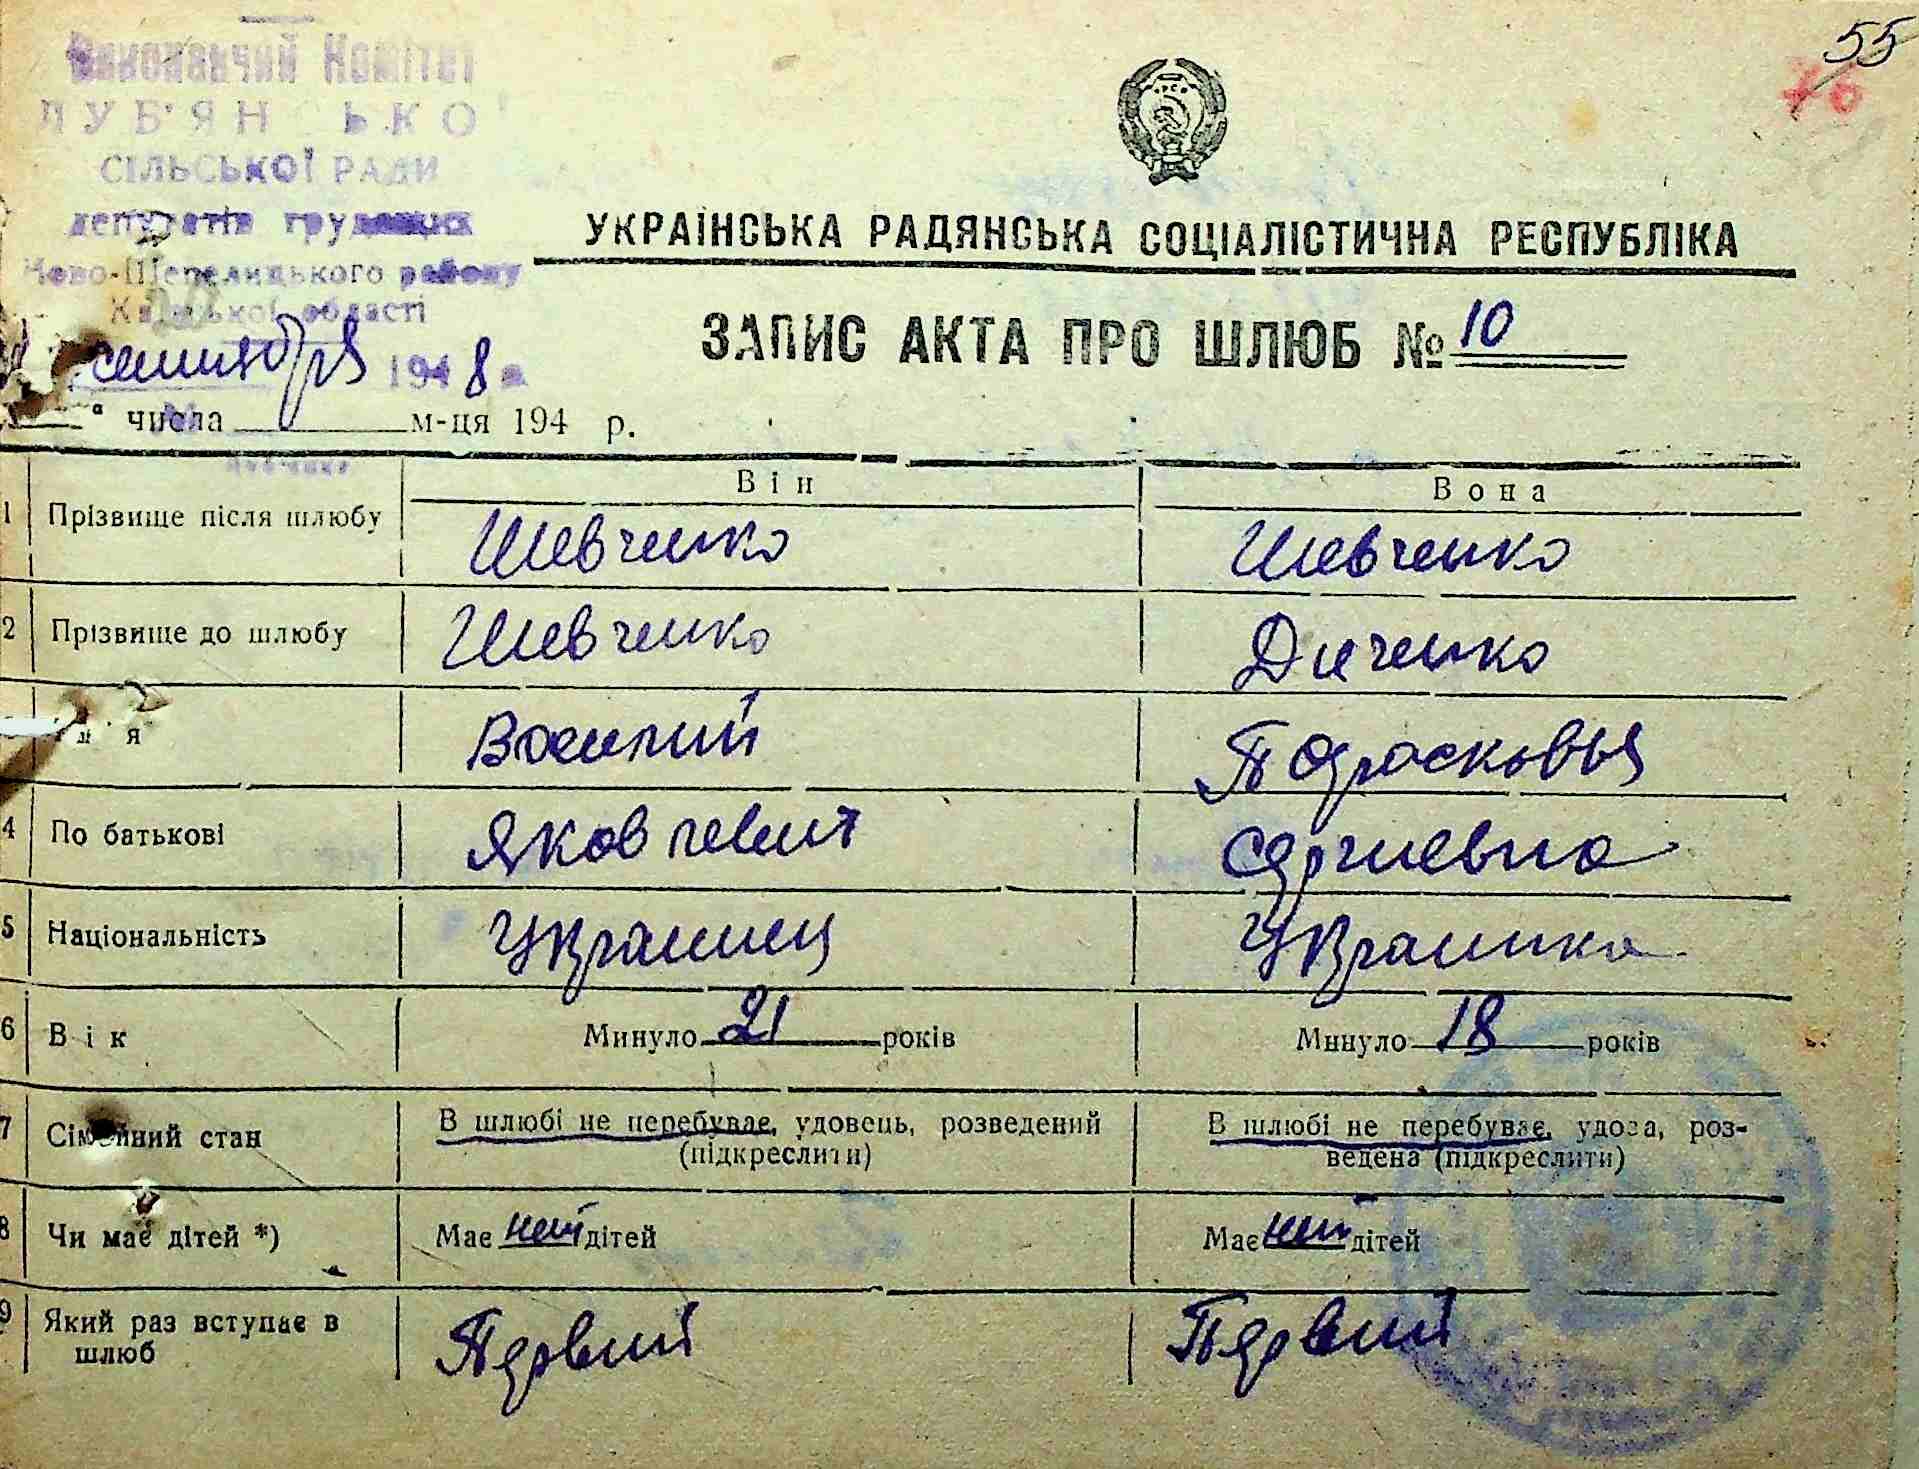 55
Виконавчий Комітет
ЛУБ'ЯНСЬКОЇ
СІЛЬСЬКОЇ РАДИ
депутатів трудящих
Ново-Шепелицького району
Київської області
сентября 1948 р.
УКРАЇНСЬКА РАДЯНСЬКА СОЦІАЛІСТИЧНА РЕСПУБЛІКА
ЗАПИС АКТА ПРО ШЛЮБ № 10
" числа м-ця 194 р.
Він Вона
1 Прізвище після шлюбу Шевченко Шевченко
2 Прізвище до шлюбу Шевченко Диченко
Василий Парасковья
4 По батькові Яковлевич Сергиевна
5 Національність Украинец Украинка
6 Вік Минуло 21 років Минуло 18 років
7 Сімейний стан В шлюбі не перебуває, удовець, розведений В шлюбі не перебуває, удова, роз-
(підкреслити) ведена (підкреслити)
8 Чи має дітей *) Має нет дітей Має нет дітей
9 Який раз вступає в Первий Первий
шлюб